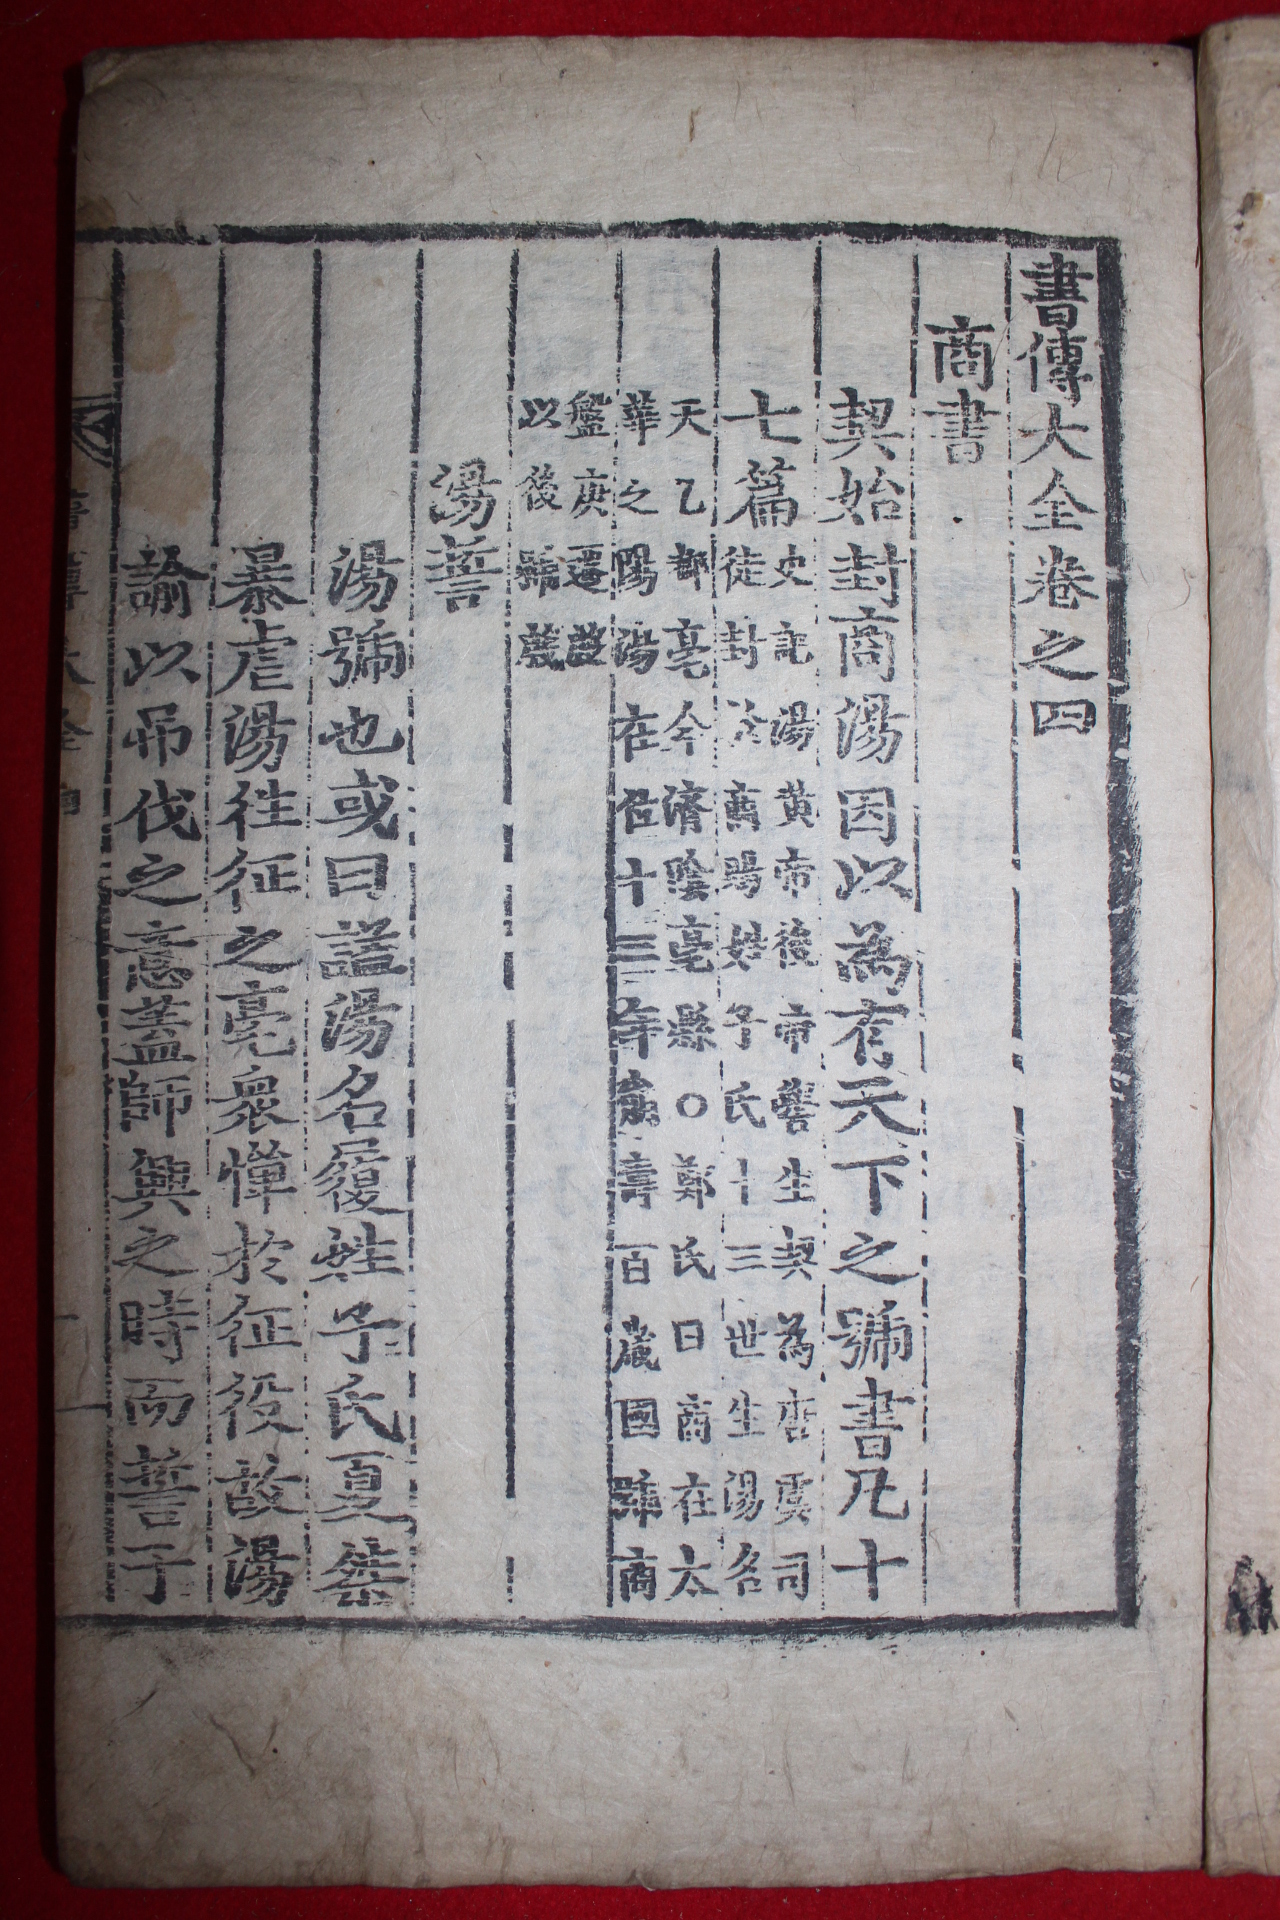 書傳大全卷之四
商書
契始封商湯因以為有天下之號書凡十
七篇
史記湯黃帝後帝嚳生契為唐虞司
徒封於商賜姓子氏十三世生湯名
天乙都亳今濟陰亳縣○鄭氏曰商在太
華之陽湯在位十三年崩壽百歲國號商
盤庚遷殷
以後號殷
湯誓
湯號也或曰謚湯名履姓子氏夏桀
暴虐湯往征之亳衆憚於征役故湯
諭以吊伐之意蓋師興之時而誓于
書傳大全